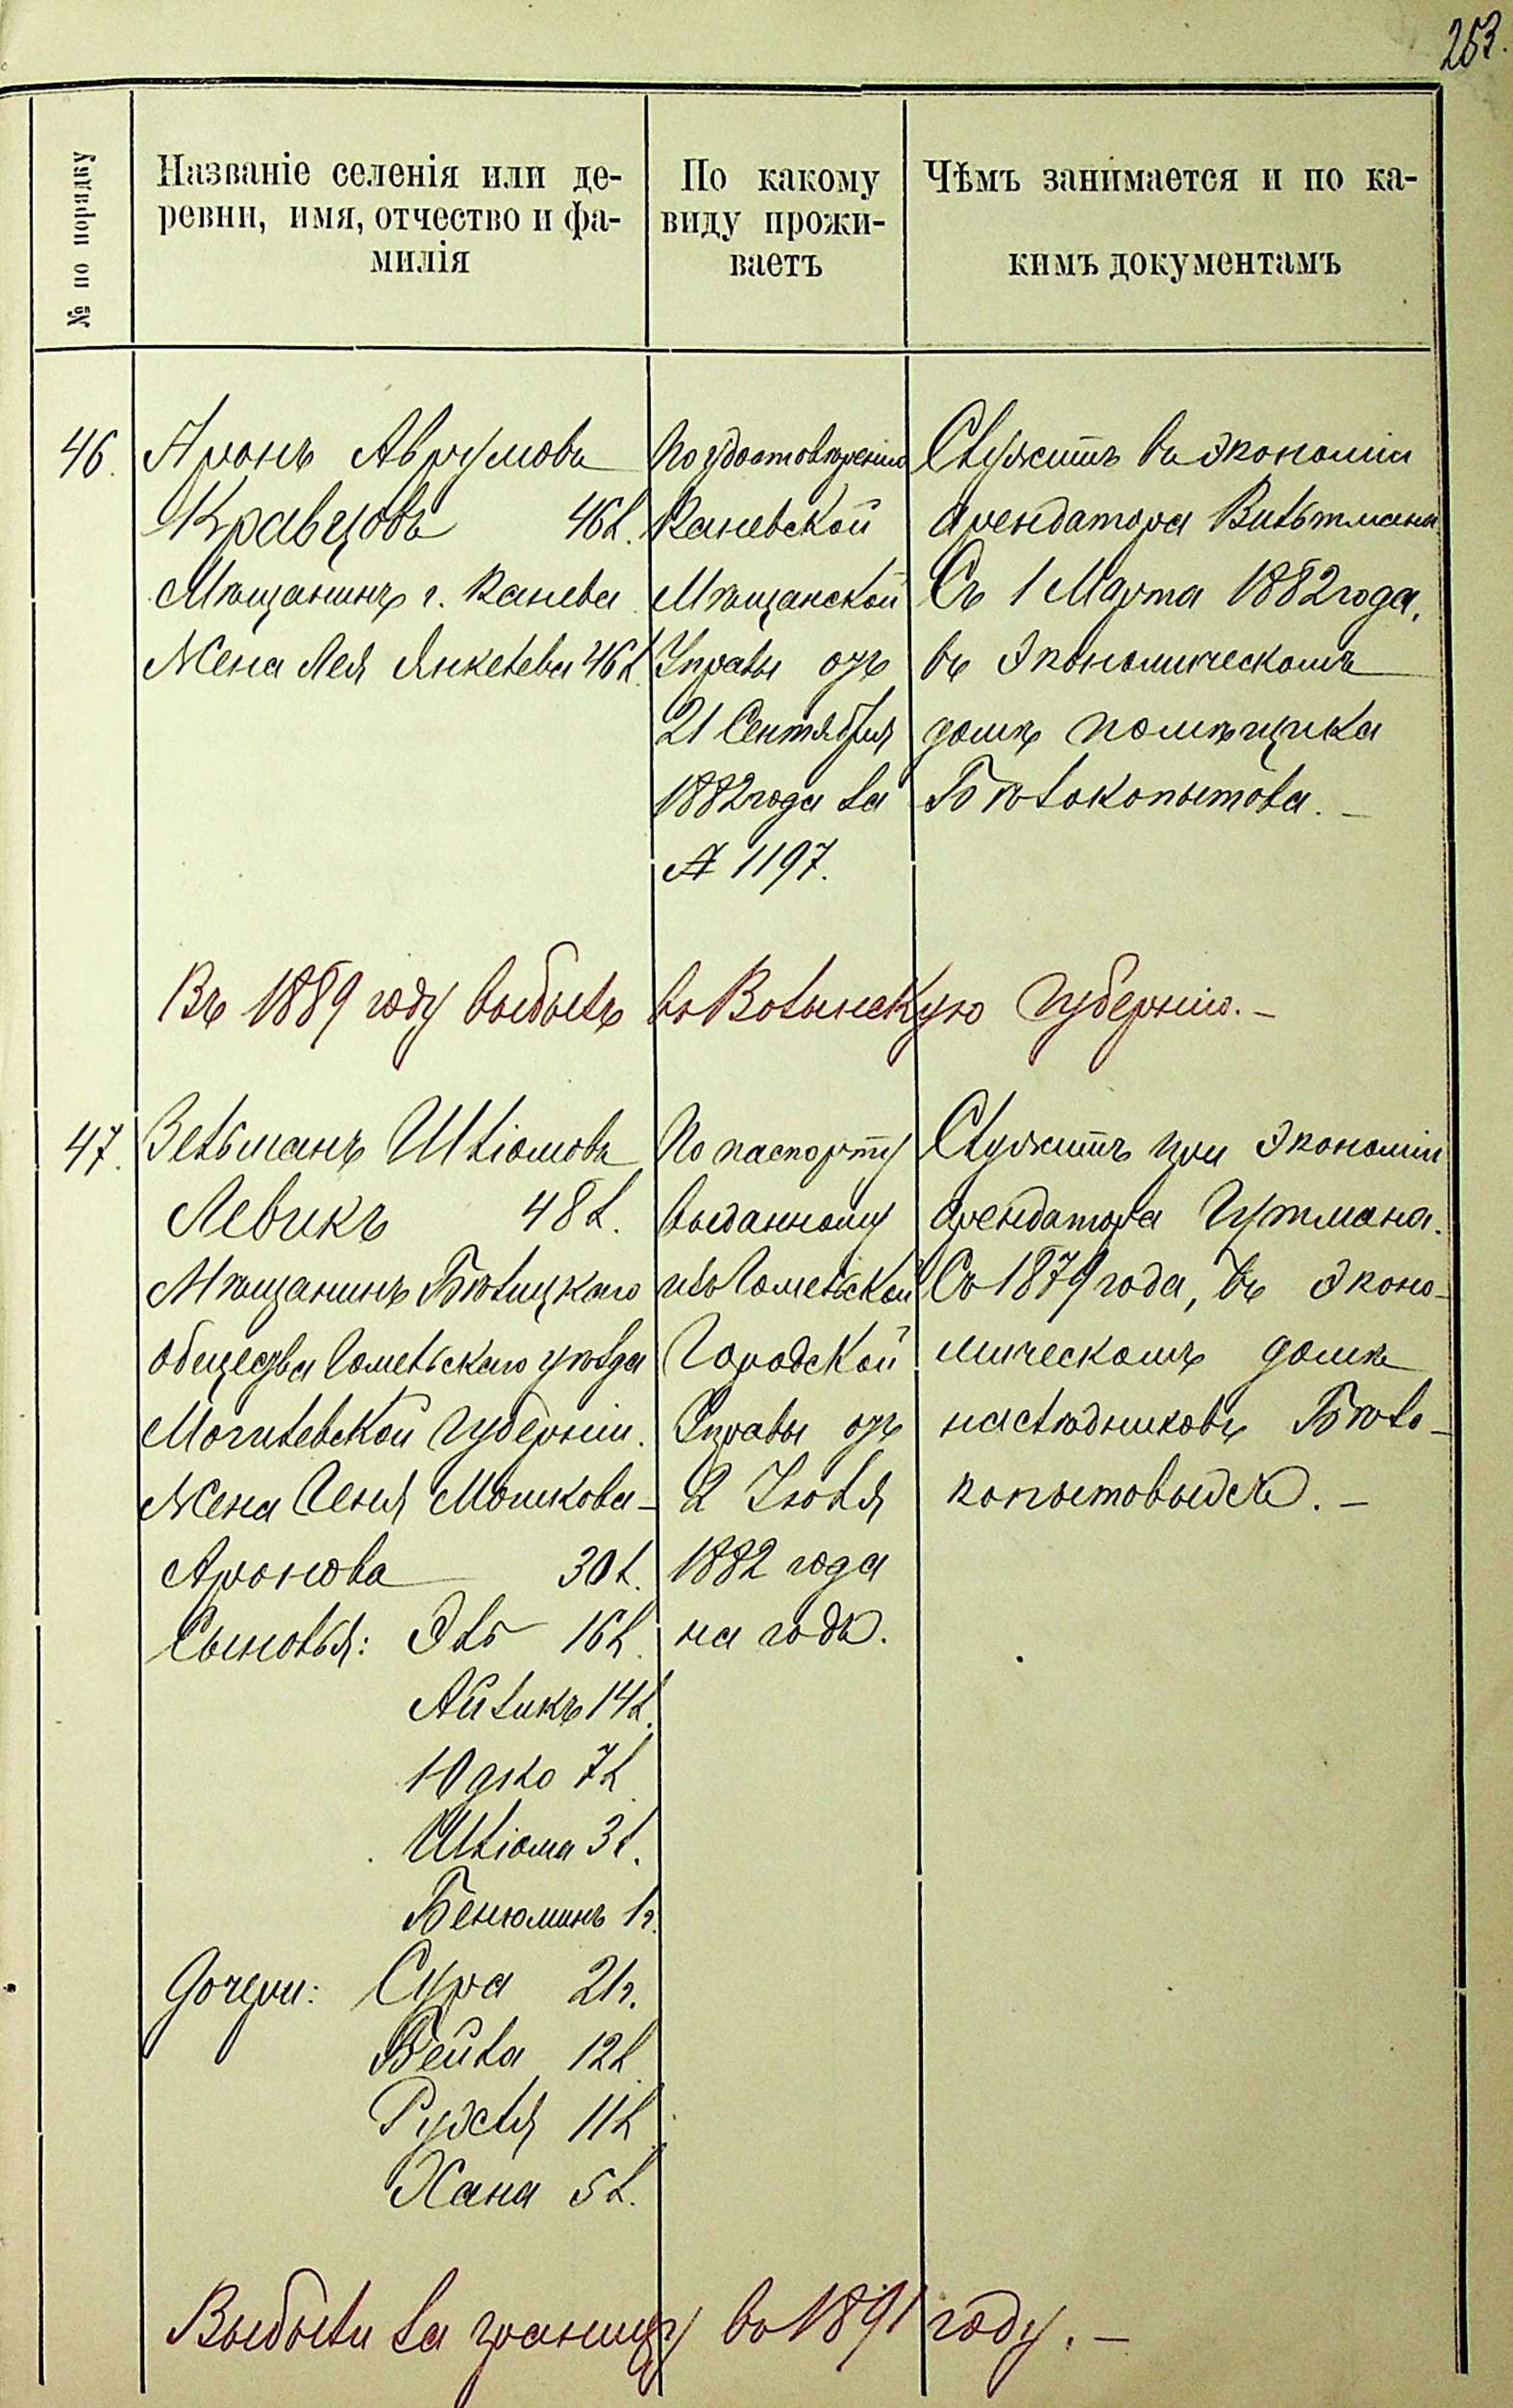 253.
№ по порядку
Названіе селенія или де-
ревни, имя, отчество и фа-
милія
По какому
виду прожи-
ваетъ
Чѣмъ занимается и по ка-
кимъ документамъ
46.
Аронъ Аврумовъ
Кравцовъ 46 л.
Мѣщанинъ г. Канева
Жена Лея Янкелева 46 л.
По удостовѣренію
Каневской
Мѣщанской
Управы отъ
21 Сентября
1882 года за
№ 1197.
Служитъ въ экономіи
арендатора Витьтмана
Съ 1 Марта 1882 года,
въ экономическомъ
домѣ помѣщика
Бѣлокопытова. —
Въ 1889 году выбылъ въ Волынскую губернію. —
47.
Зельманъ Шліомовъ
Левикъ 48 л.
Мѣщанинъ Бѣлицкаго
общества Гомельскаго уѣзда
Могилевской губерніи.
Жена Геня Мошкова —
Аронова 30 л.
Сыновья: Эль 16 л.
Айзикъ 14 л.
Юдко 7 л.
Шліома 3 л.
Бенюминъ 1 г.
Дочери: Сура 21 г.
Бейла 12 л.
Рухля 11 л.
Хана 5 л.
По паспорту
выданному
изъ Гомельской
Городской
Управы отъ
2 Іюля
1882 года
на годъ.
Служитъ при экономіи
арендатора Гутмана.
Съ 1879 года, въ эконо-
мическомъ домѣ
наслѣдниковъ Бѣло-
копытовыхъ. —
Выбыли за границу въ 1891 году. —